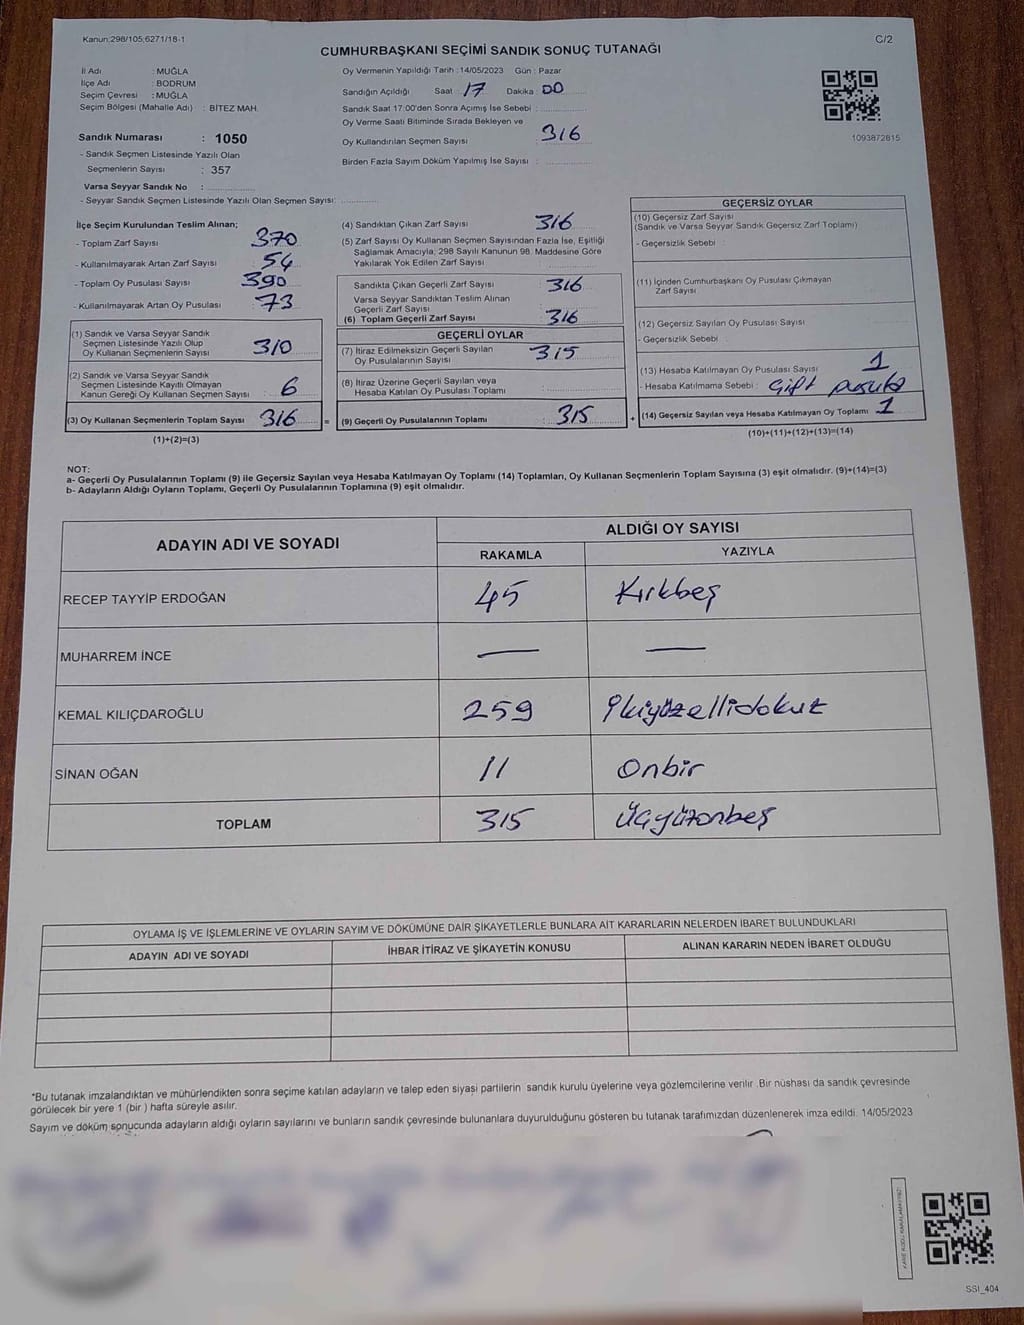 Kanun:298/105;6271/18-1
C/2
CUMHURBAŞKANI SEÇİMİ SANDIK SONUÇ TUTANAĞI
İl Adı : MUĞLA
İlçe Adı : BODRUM
Seçim Çevresi : MUĞLA
Seçim Bölgesi (Mahalle Adı) : BİTEZ MAH.
Oy Vermenin Yapıldığı Tarih :14/05/2023 Gün : Pazar
Sandığın Açıldığı Saat : 17 Dakika : 00
Sandık Saat 17:00'den Sonra Açımış İse Sebebi :
Oy Verme Saati Bitiminde Sırada Bekleyen ve
Oy Kullandırılan Seçmen Sayısı : 316
Birden Fazla Sayım Döküm Yapılmış İse Sayısı :
1093872815
Sandık Numarası : 1050
- Sandık Seçmen Listesinde Yazılı Olan
Seçmenlerin Sayısı : 357
Varsa Seyyar Sandık No :
- Seyyar Sandık Seçmen Listesinde Yazılı Olan Seçmen Sayısı:
İlçe Seçim Kurulundan Teslim Alınan;
- Toplam Zarf Sayısı : 370
- Kullanılmayarak Artan Zarf Sayısı : 54
- Toplam Oy Pusulası Sayısı : 390
- Kullanılmayarak Artan Oy Pusulası : 73
(1) Sandık ve Varsa Seyyar Sandık
Seçmen Listesinde Yazılı Olup
Oy Kullanan Seçmenlerin Sayısı : 310
(2) Sandık ve Varsa Seyyar Sandık
Seçmen Listesinde Kayıtlı Olmayan
Kanun Gereği Oy Kullanan Seçmen Sayısı : 6
(3) Oy Kullanan Seçmenlerin Toplam Sayısı : 316
(1)+(2)=(3)
(4) Sandıktan Çıkan Zarf Sayısı : 316
(5) Zarf Sayısı Oy Kullanan Seçmen Sayısından Fazla İse, Eşitliği
Sağlamak Amacıyla, 298 Sayılı Kanunun 98. Maddesine Göre
Yakılarak Yok Edilen Zarf Sayısı :
Sandıkta Çıkan Geçerli Zarf Sayısı : 316
Varsa Seyyar Sandıktan Teslim Alınan
Geçerli Zarf Sayısı :
(6) Toplam Geçerli Zarf Sayısı : 316
GEÇERLİ OYLAR
(7) İtiraz Edilmeksizin Geçerli Sayılan
Oy Pusulalarının Sayısı : 315
(8) İtiraz Üzerine Geçerli Sayılan veya
Hesaba Katılan Oy Pusulası Toplamı :
= (9) Geçerli Oy Pusulalarının Toplamı : 315
GEÇERSİZ OYLAR
(10) Geçersiz Zarf Sayısı
(Sandık ve Varsa Seyyar Sandık Geçersiz Zarf Toplamı)
- Geçersizlik Sebebi :
(11) İçinden Cumhurbaşkanı Oy Pusulası Çıkmayan
Zarf Sayısı :
(12) Geçersiz Sayılan Oy Pusulası Sayısı :
- Geçersizlik Sebebi :
(13) Hesaba Katılmayan Oy Pusulası Sayısı : 1
- Hesaba Katılmama Sebebi : Çift pusula
+ (14) Geçersiz Sayılan veya Hesaba Katılmayan Oy Toplamı : 1
(10)+(11)+(12)+(13)=(14)
NOT:
a- Geçerli Oy Pusulalarının Toplamı (9) ile Geçersiz Sayılan veya Hesaba Katılmayan Oy Toplamı (14) Toplamları, Oy Kullanan Seçmenlerin Toplam Sayısına (3) eşit olmalıdır. (9)+(14)=(3)
b- Adayların Aldığı Oyların Toplamı, Geçerli Oy Pusulalarının Toplamına (9) eşit olmalıdır.
ADAYIN ADI VE SOYADI
ALDIĞI OY SAYISI
RAKAMLA YAZIYLA
RECEP TAYYİP ERDOĞAN 45 Kırkbeş
MUHARREM İNCE — —
KEMAL KILIÇDAROĞLU 259 İkiyüzellidokuz
SİNAN OĞAN 11 Onbir
TOPLAM 315 Üçyüzonbeş
OYLAMA İŞ VE İŞLEMLERİNE VE OYLARIN SAYIM VE DÖKÜMÜNE DAİR ŞİKAYETLERLE BUNLARA AİT KARARLARIN NELERDEN İBARET BULUNDUKLARI
ADAYIN ADI VE SOYADI İHBAR İTİRAZ VE ŞİKAYETİN KONUSU ALINAN KARARIN NEDEN İBARET OLDUĞU
*Bu tutanak imzalandıktan ve mühürlendikten sonra seçime katılan adayların ve talep eden siyasi partilerin sandık kurulu üyelerine veya gözlemcilerine verilir .Bir nüshası da sandık çevresinde
görülecek bir yere 1 (bir ) hafta süreyle asılır.
Sayım ve döküm sonucunda adayların aldığı oyların sayılarını ve bunların sandık çevresinde bulunanlara duyurulduğunu gösteren bu tutanak tarafımızdan düzenlenerek imza edildi. 14/05/2023
SSI_404